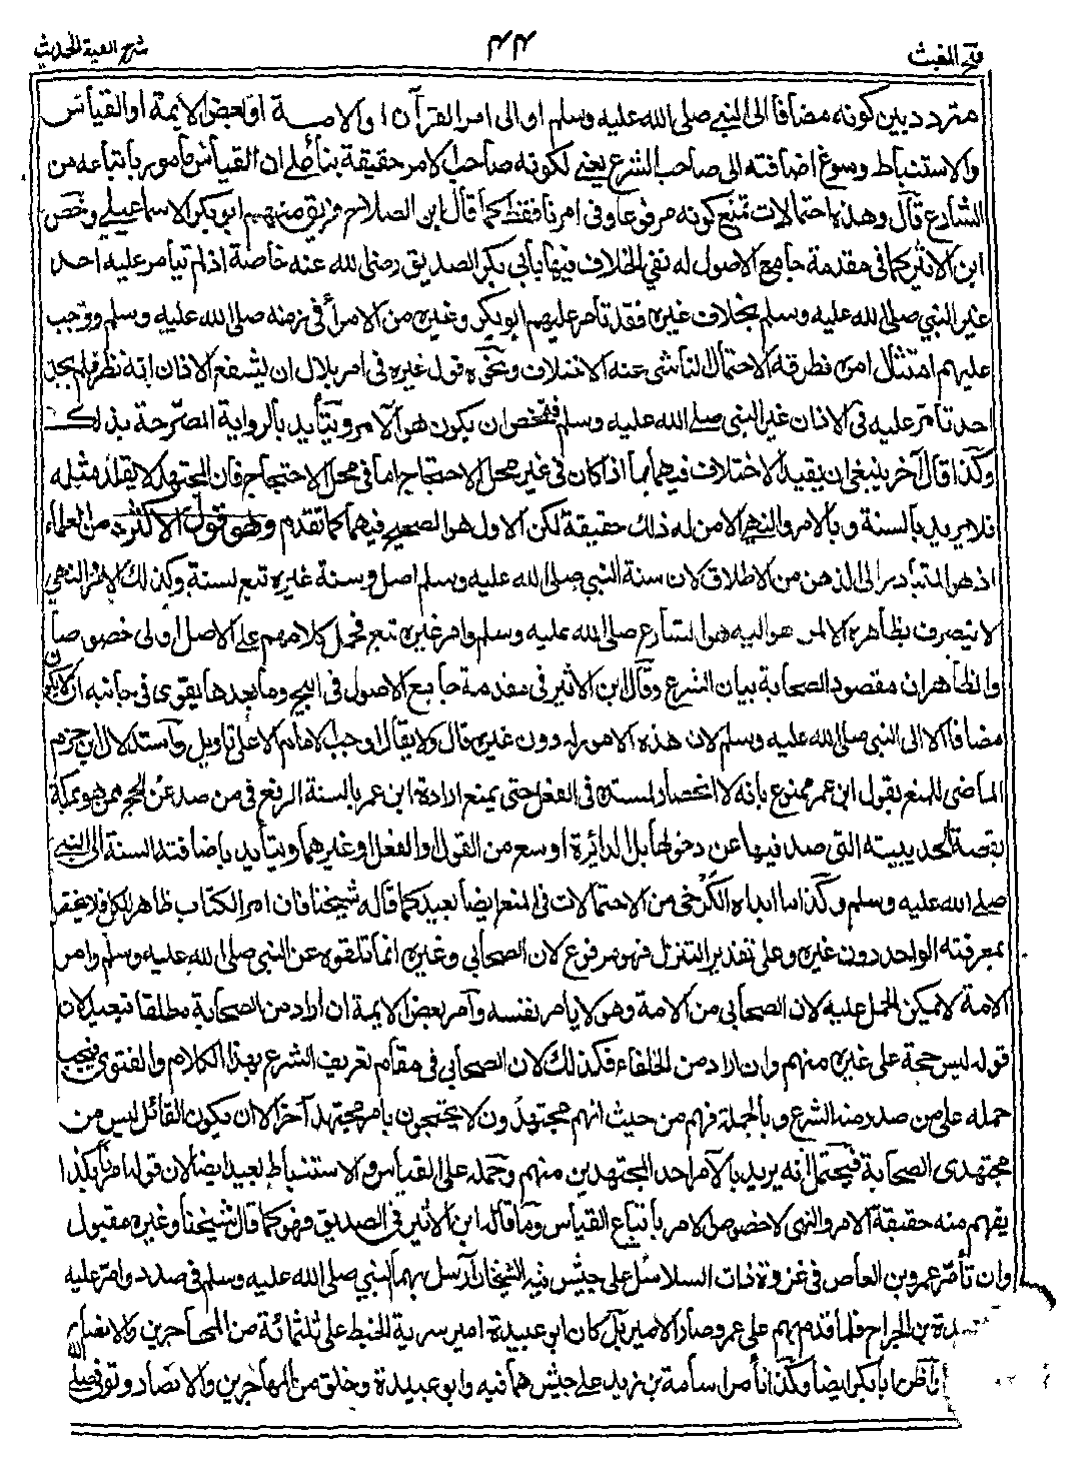 فتح المغيث ٤٤ شرح الفية الحديث
متردد بين كونه مضافا الى النبي صلى الله عليه وسلم او الى امر القرآن او الامة او بعض الايمة او القياس
والاستنباط وسوغ اضافته الى صاحب الشرع يعنى لكونه صاحب الامر حقيقة بناء على ان القياس مامور باتباعه من
الشارع قال وهذه احتمالات تمنع كونه مرفوعا وفى امرنا فقط كما قال ابن الصلاح فريق منهم ابو بكر الاسماعيلي وخص
ابن الاثير كما فى مقدمة جامع الاصول له نفي الخلاف فيها بابي بكر الصديق رضى الله عنه خاصة اذ لم يتامر عليه احد
غير النبي صلى الله عليه وسلم بخلاف غيره فقد تامر عليهم ابو بكر وغيره من الامرأ فى زمنه صلى الله عليه وسلم ووجب
عليهم امتثال امره فطرقه الاحتمال الناشى عنه الاختلاف ونحوه قول غيره فى امر بلال ان يشفع الاذان انه نظر فلم يجد
احد تأمر عليه فى الاذان غير النبى صلى الله عليه وسلم فتمخض ان يكون هو الآمر ويتأيد بالرواية المصرحة بذلك
وكذا قال آخر ينبغى ان يقيد الاختلاف فيهما بما اذا كان فى غير محل الاحتجاج اما فى محل الاحتجاج فان المجتهد لا يقلد مثله
فلا يريد بالسنة وبالامر والنهي الا من له ذلك حقيقة لكن الاول هو الصحيح فيهما كما تقدم وهو قول الاكثر من العلماء
اذ هو المتبادر الى الذهن من الاطلاق لان سنة النبي صلى الله عليه وسلم اصل وسنة غيره تبع لسنته وكذلك الامر والنهي
لا ينصرف بظاهره الا لمن هو اليه هو الشارع صلى الله عليه وسلم وامر غيره تبع فحمل كلامهم على الاصل اولى خصوصا
والظاهر ان مقصود الصحابة بيان الشرع وقال ابن الاثير فى مقدمة جامع الاصول فى اليج وما بعدها يقوى فى جانبه ان لا يكون
مضافا الا الى النبي صلى الله عليه وسلم لان هذه الامور له دون غيره قال ولا يقال اوجب الامام الا على تاويل واستدلال ابن حزم
الماضى للمنع بقول ابن عمر ممنوع بانه لا انحصار لمستنده فى الفعل حتى يمنع ارادة ابن عمر بالسنة الرفع فى من صد عن الحج ممن هو بمكة
بقصة الحديبية التى صد فيها عن دخولها بل الدائرة اوسع من القول والفعل وغيرهما ويتأيد باضافته السنة الى النبي
صلى الله عليه وسلم وكذا ما ابداه الكرخى من الاحتمالات فى المنع ايضا بعيد كما قاله شيخنا فان امر الكتاب ظاهر للكل فلا يختص
بمعرفته الواحد دون غيره وعلى تقدير التنزل فهو مرفوع لان الصحابي وغيره انما تلقوه عن النبي صلى الله عليه وسلم وامر
الامة لا يمكن الحمل عليه لان الصحابى من الامة وهو لا يامر نفسه وامر بعض الايمة ان اراد من الصحابة مطلقا فبعيد لان
قوله ليس حجة على غيره منهم وان اراد من الخلفاء فكذلك لان الصحابى فى مقام تعريف الشرع بهذا الكلام والفتوى فيجب
حمله على من صدر منه الشرع وبالجملة فهم من حيث انهم مجتهدون لا يحتجون بامر مجتهد آخر الا ان يكون القائل ليس من
مجتهدى الصحابة فيحتمل انه يريد بالآمر احد المجتهدين منهم وحمله على القياس والاستنباط بعيد ايضا لان قوله امرنا بكذا
يفهم منه حقيقة الامر والنهى لا خصوص الامر باتباع القياس وما قاله ابن الاثير فى الصديق فهو كما قال شيخنا وغيره مقبول
وان تأمر عمرو بن العاص فى غزوة ذات السلاسل على جيش فيه الشيخان ارسل بهما النبي صلى الله عليه وسلم فى مدد وامر عليه
عبيدة بن الجراح فلما قدم بهم على عمرو صار الامير بل كان ابو عبيدة امير سرية الخبط على ثلثمائة من المهاجرين والانصار
واظن ابا بكر ايضا وكذا تأمر اسامة بن زيد على جيش هما فيه وابو عبيدة وخلق من المهاجرين والانصار وتوفى صلى الله